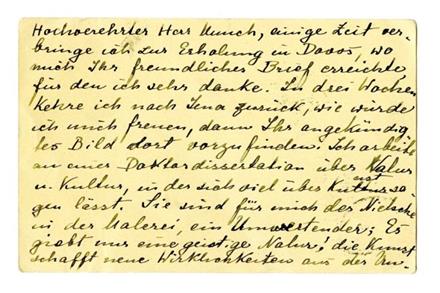 Hochverehrter Herr Munch, einige Zeit ver-
bringe ich zur Erholung in Davos, wo
mich Ihr freundlicher Brief erreichte
für den ich sehr danke. In drei Wochen
kehre ich nach Jena zurück, wie würde
ich mich freuen, dann Ihr angekündig
tes Bild dort vorzufinden! Ich arbeite
an einer Doktordissertation über Natur
u. Kultur, in der sich viel über sa-
gen lässt. Sie sind für mich der Nietzsche
in der Malerei, ein Umwertender; Es
giebt nur eine geistige Natur! die Kunst
schafft neue Wirklichkeiten aus der Un-